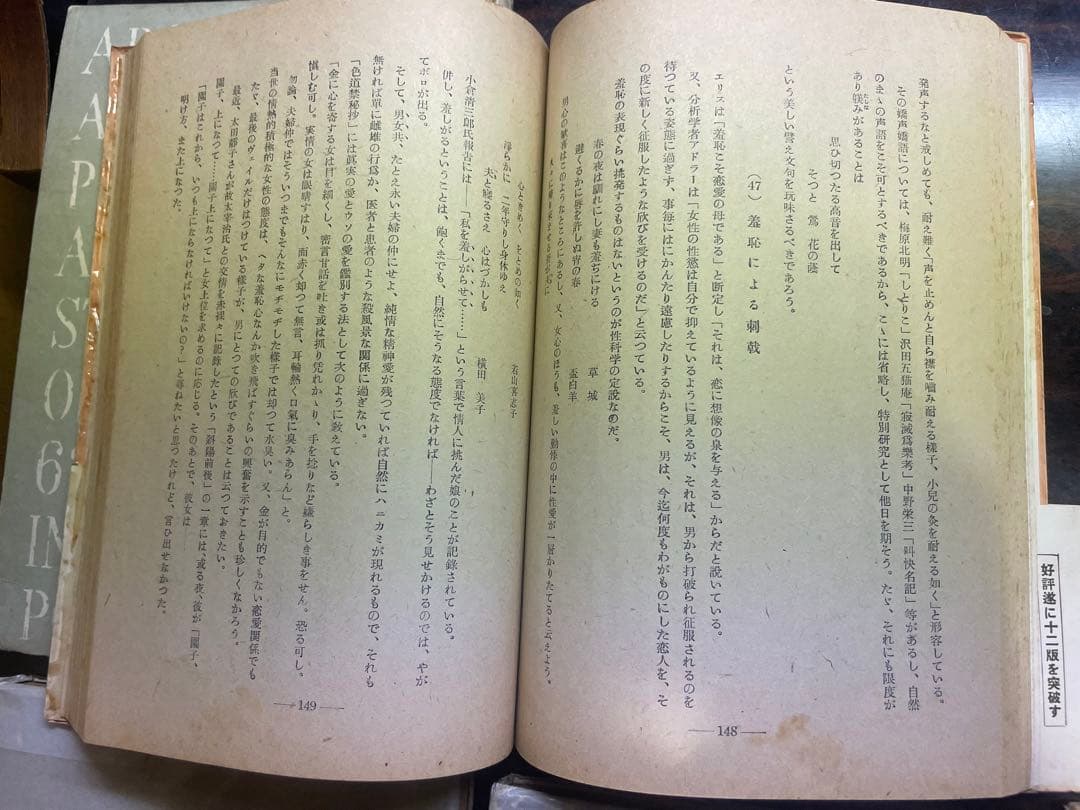 発声するなと戒しめても、耐え難く声を止めんと自ら襟を嚙み耐える様子、小児の灸を耐える如く」と形容している。
その嬌声嬌語については、梅原北明「しとりこ」沢田五猫庵「寂滅爲樂考」中野栄三「叫快名記」等があるし、自然
のまゝの声語をこそ可とするべきであるから、こゝには省略し、特別研究として他日を期そう。たゞ、それにも限度が
あり嗜みがあることは
思ひ切つたる高音を出して
そつと 鶯 花の蔭
という美しい譬え文句を玩味さるべきであろう。
(47) 羞恥による刺戟
エリスは「羞恥こそ恋愛の母である」と断定し「それは、恋に想像の泉を与える」からだと説いている。
又、分析学者アドラーは「女性の性慾は自分で抑えているように見えるが、それは、男から打破られ征服されるのを
待つている姿態に過ぎず、事毎にはにかんたり遠慮したりするからこそ、男は、今迄何度もわがものにした恋人を、そ
の度に新しく征服したような欣びを受けるのだ」と云つている。
羞恥の表現ぐらい挑発するものはないというのが性科学の定説なのだ。
春の夜は馴れにし妻も羞ぢにける 草城
避くるかに唇を許しぬ宵の春 盃白羊
男心の厭喜はこのようなところにあるし、又、女心のほうも、羞しい動作の中に性愛が一層かりたてると云えよう。
心ときめく、をとめの如く
淂らかに 二年守りし身体ゆえ 若山喜志子
夫と寢るさえ 心はづかしも 橫田 美子
小倉清三郎氏報告には――「私を羞しがらせて……」という言葉で情人に挑んだ娘のことが記錄されている。
併し、羞しがるということは、飽くまでも、自然にそうなる態度でなければ――わざとそう見せかけるのでは、やが
てボロが出る。
そして、男女共、たとえ永い夫婦の仲にせよ、純情な精神愛が残つていれば自然にハニカミが現れるもので、それも
無ければ單に雌雄の行爲か、医者と患者のような殺風景な関係に過ぎない。
「色道禁秘抄」には眞実の愛とウソの愛を鑑別する法として次のように敎えている。
「金に心を寄する女は目を細くし、密言甘話を吐き或は抓り凭れかゝり、手を捻りなど嫌らしき事をせん。恐る可し。
愼しむ可し。実情の女は眼晴すはり、面赤く却つて無言、耳輪熱く口氣に臭みあらん」と。
勿論、夫婦仲ではそういつまでもそんなにモヂモヂした樣子では却つて水臭い。又、金が目的でもない恋愛関係でも
当世の情熱的積極的な女性の態度は、ヘタな羞恥心なんか吹き飛ばすぐらいの興奮を示すことも珍しくなかろう。
たゞ、最後のヴェイルだけはつけている様子が、男にとつての欣びであることは云つておきたい。
最近、太田靜子さんが故太宰治氏との交情を赤裸々に記錄したという「斜陽前後」の一章には、或る夜、彼が「園子、
園子、上になつて……園子上になつて」と女上位を求めるのに応じる。そのあとで、彼女は――
「園子はこれから、いつも上にならなければいけないの？」と尋ねたいと思つたけれど、言ひ出せなかつた。
明け方、また上になつた。
―148―
―149―
好評遂に十二版を突破す